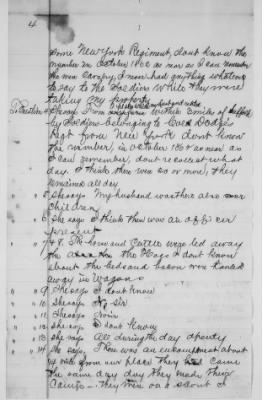 4
some New York Regiment, dont know the
number in October 1862 as near as I can remember
the were Cavalry I never had anything whatever
to say to the Soldiers while they were
taking my property
To Question 4 She says From within miles of
by Soldiers belonging to Col Dodges
Regt from New York dont know
the number, in October 1862 as near as
I can remember, dont recollect what
day. I think there was 50 or more, they
remained all day
" " 5 She says My husband was there also our
Children
" " 6 She says I think there was an officer
present
" " 7 & 8. The horse and Cattle were led away
the Hogs I dont know
about the Corn and bacon were hauled
away in Wagons
" " 9 She says I dont know
" " 10 She says No Sir
" " 11 She says
" " 12 She says I dont Know
" " 13 She says All during the day openly
" " 14 She says There was an encampment about
miles from our place they Came
the same day they made their
Camp - they was about